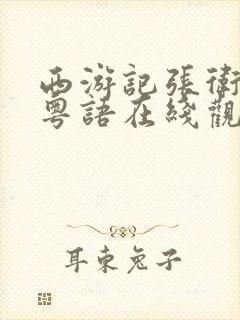 西游記張衛
粵語在綫觀
耳東兔子